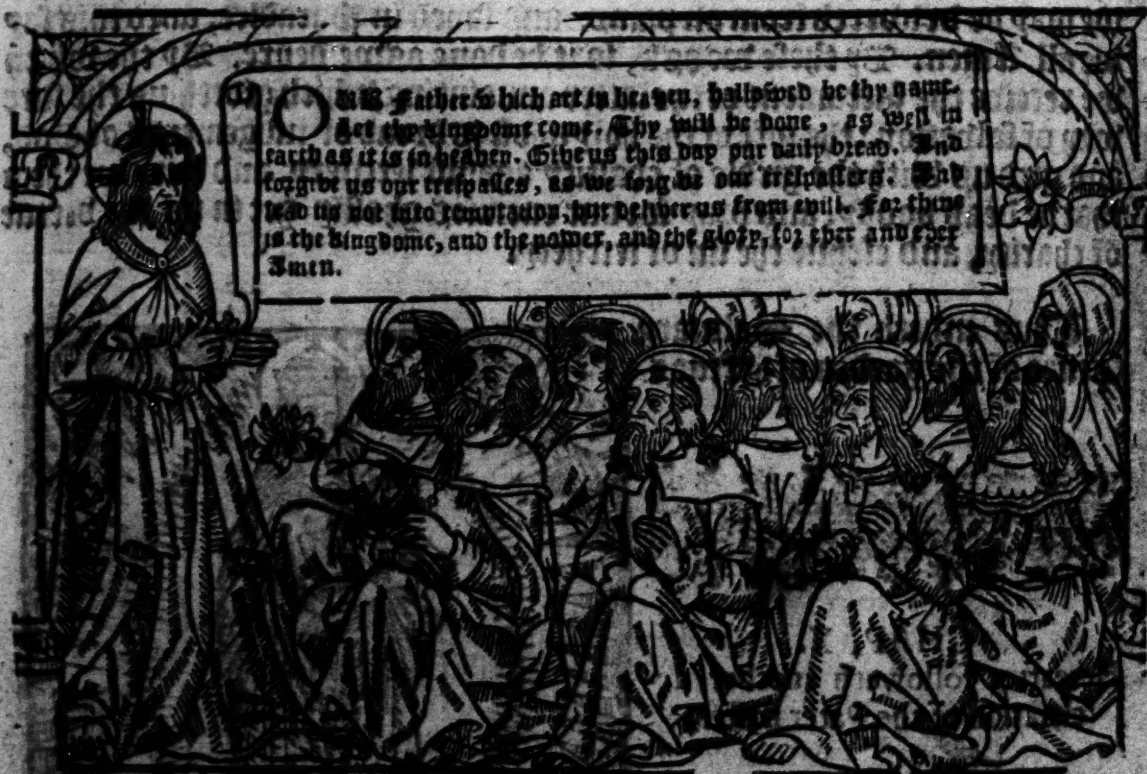 OUR Father which art in heaven, hallowed be thy name.
Let thy kingdome come. Thy will be done, as well in
earth as it is in heaven. Give us this day our daily bread. And
forgive us our trespasses, as we forgive our trespassers. And
lead us not into temptation, but deliver us from evill. For thine
is the kingdome, and the power, and the glory, for ever and ever
Amen.